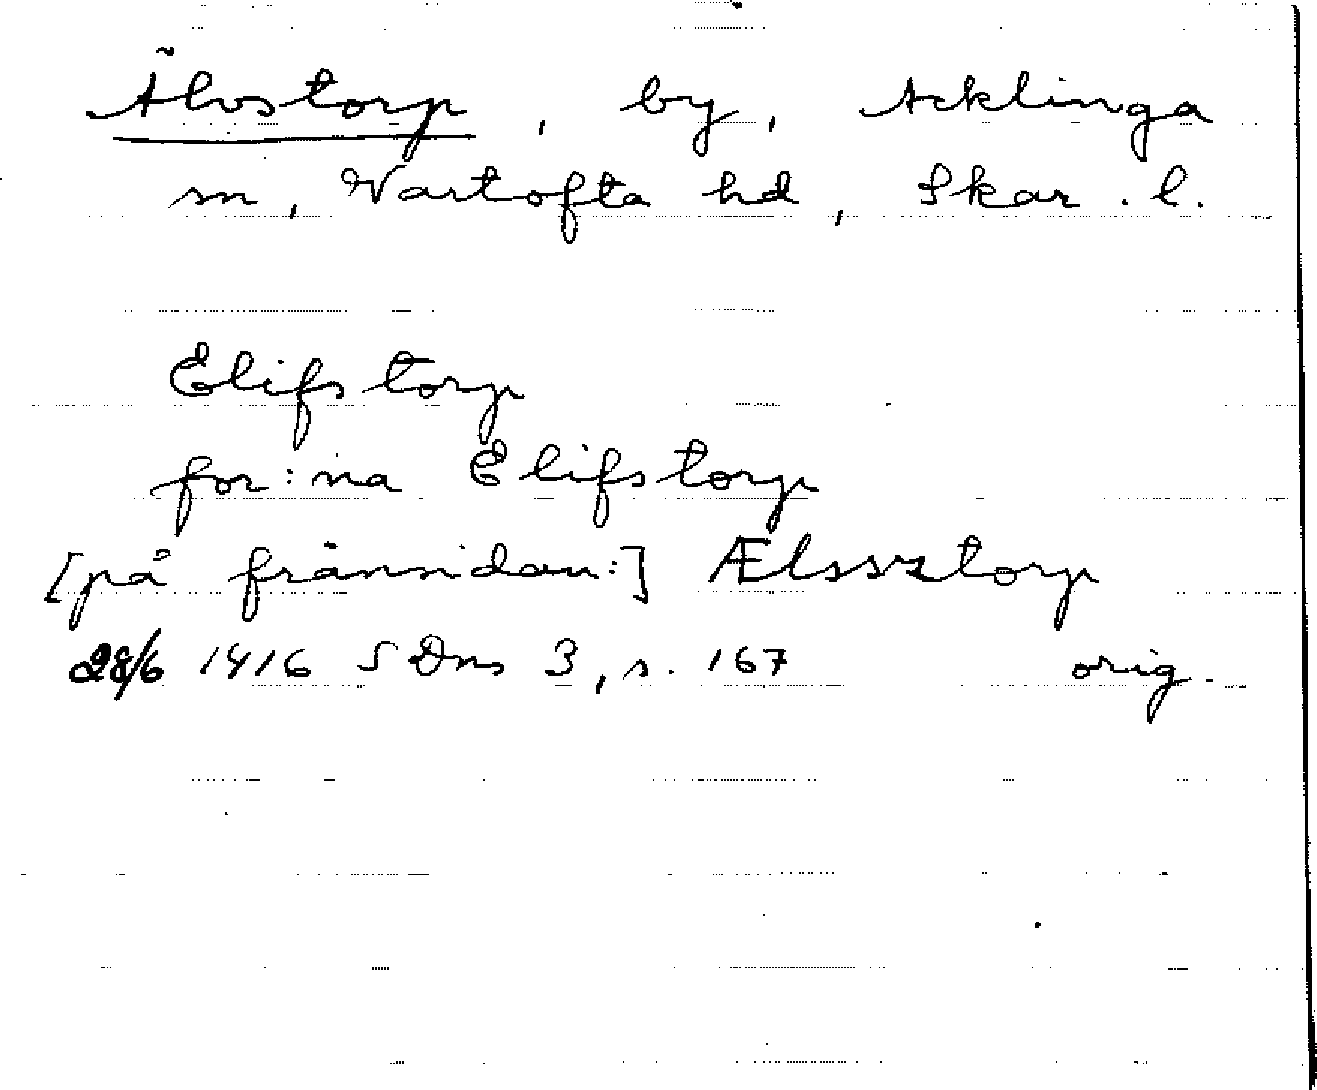 Älvstorp, by, Acklinga
sn, Vartofta hd, Skar. l.
Elifstorp
for:na Elifstorp
[på frånsidan:] Ælssztorp
28/6 1416 SDns 3, s. 167 orig.